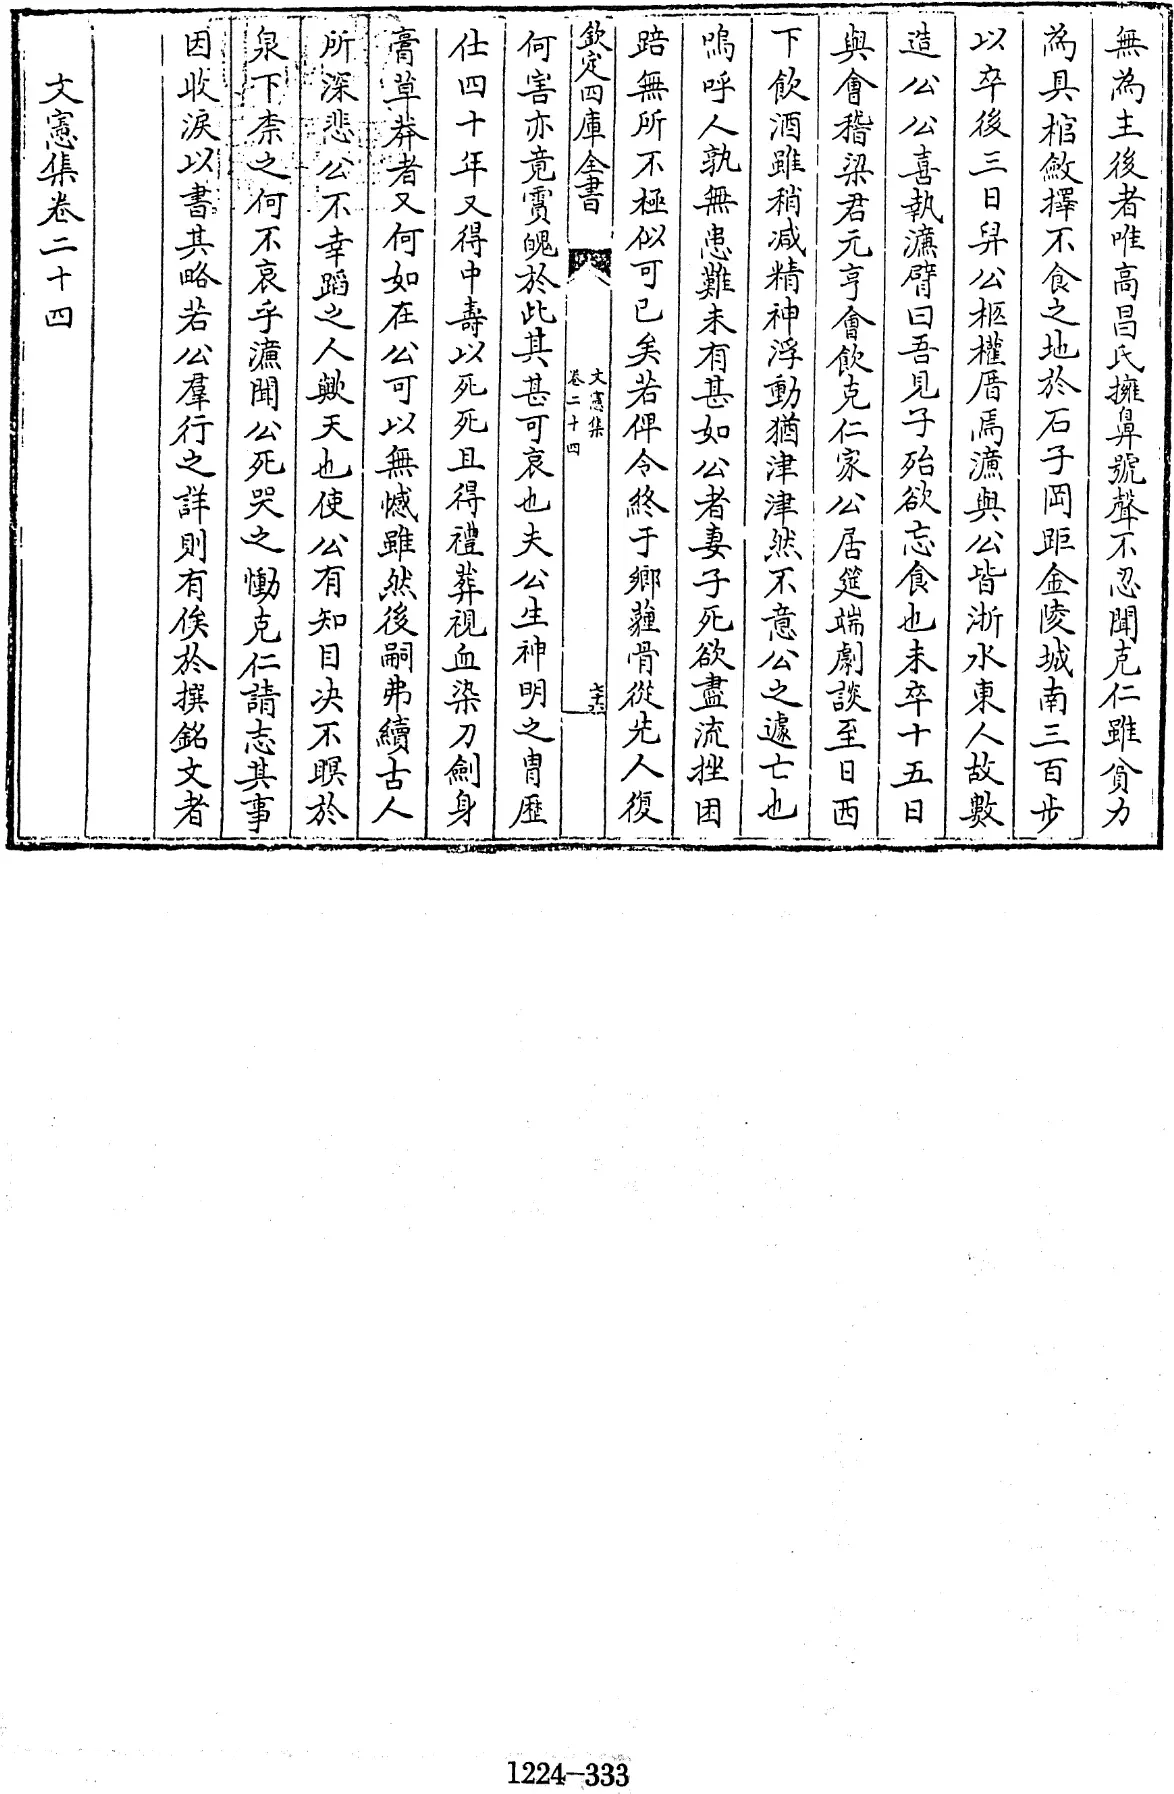 無為主後者唯高昌氏擁鼻號聲不忍聞克仁雖貧力
為具棺斂擇不食之地於石子岡距金陵城南三百步
以卒後三日舁公柩權厝焉濂與公皆浙水東人故數
造公公喜執濂臂曰吾見子殆欲忘食也未卒十五日
與會稽梁君元亨會飲克仁家公居筵端劇談至日西
下飲酒雖稍減精神浮動猶津津然不意公之遽亡也
嗚呼人孰無患難未有甚如公者妻子死欲盡流挫困
踣無所不極似可已矣若俾令終于鄉薶骨從先人復
欽定四庫全書
文憲集
卷二十四
何害亦竟霣魄於此其甚可哀也夫公生神明之胄歷
仕四十年又得中壽以死死且得禮葬視血染刀劍身
膏草莽者又何如在公可以無憾雖然後嗣弗續古人
所深悲公不幸蹈之人歟天也使公有知目决不瞑於
泉下柰之何不哀乎濂聞公死哭之慟克仁請志其事
因收淚以書其略若公羣行之詳則有俟於撰銘文者
文憲集卷二十四
1224-333